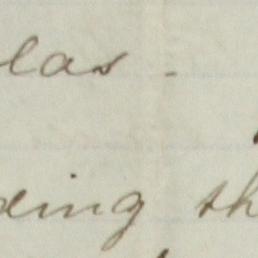 las -
ding th